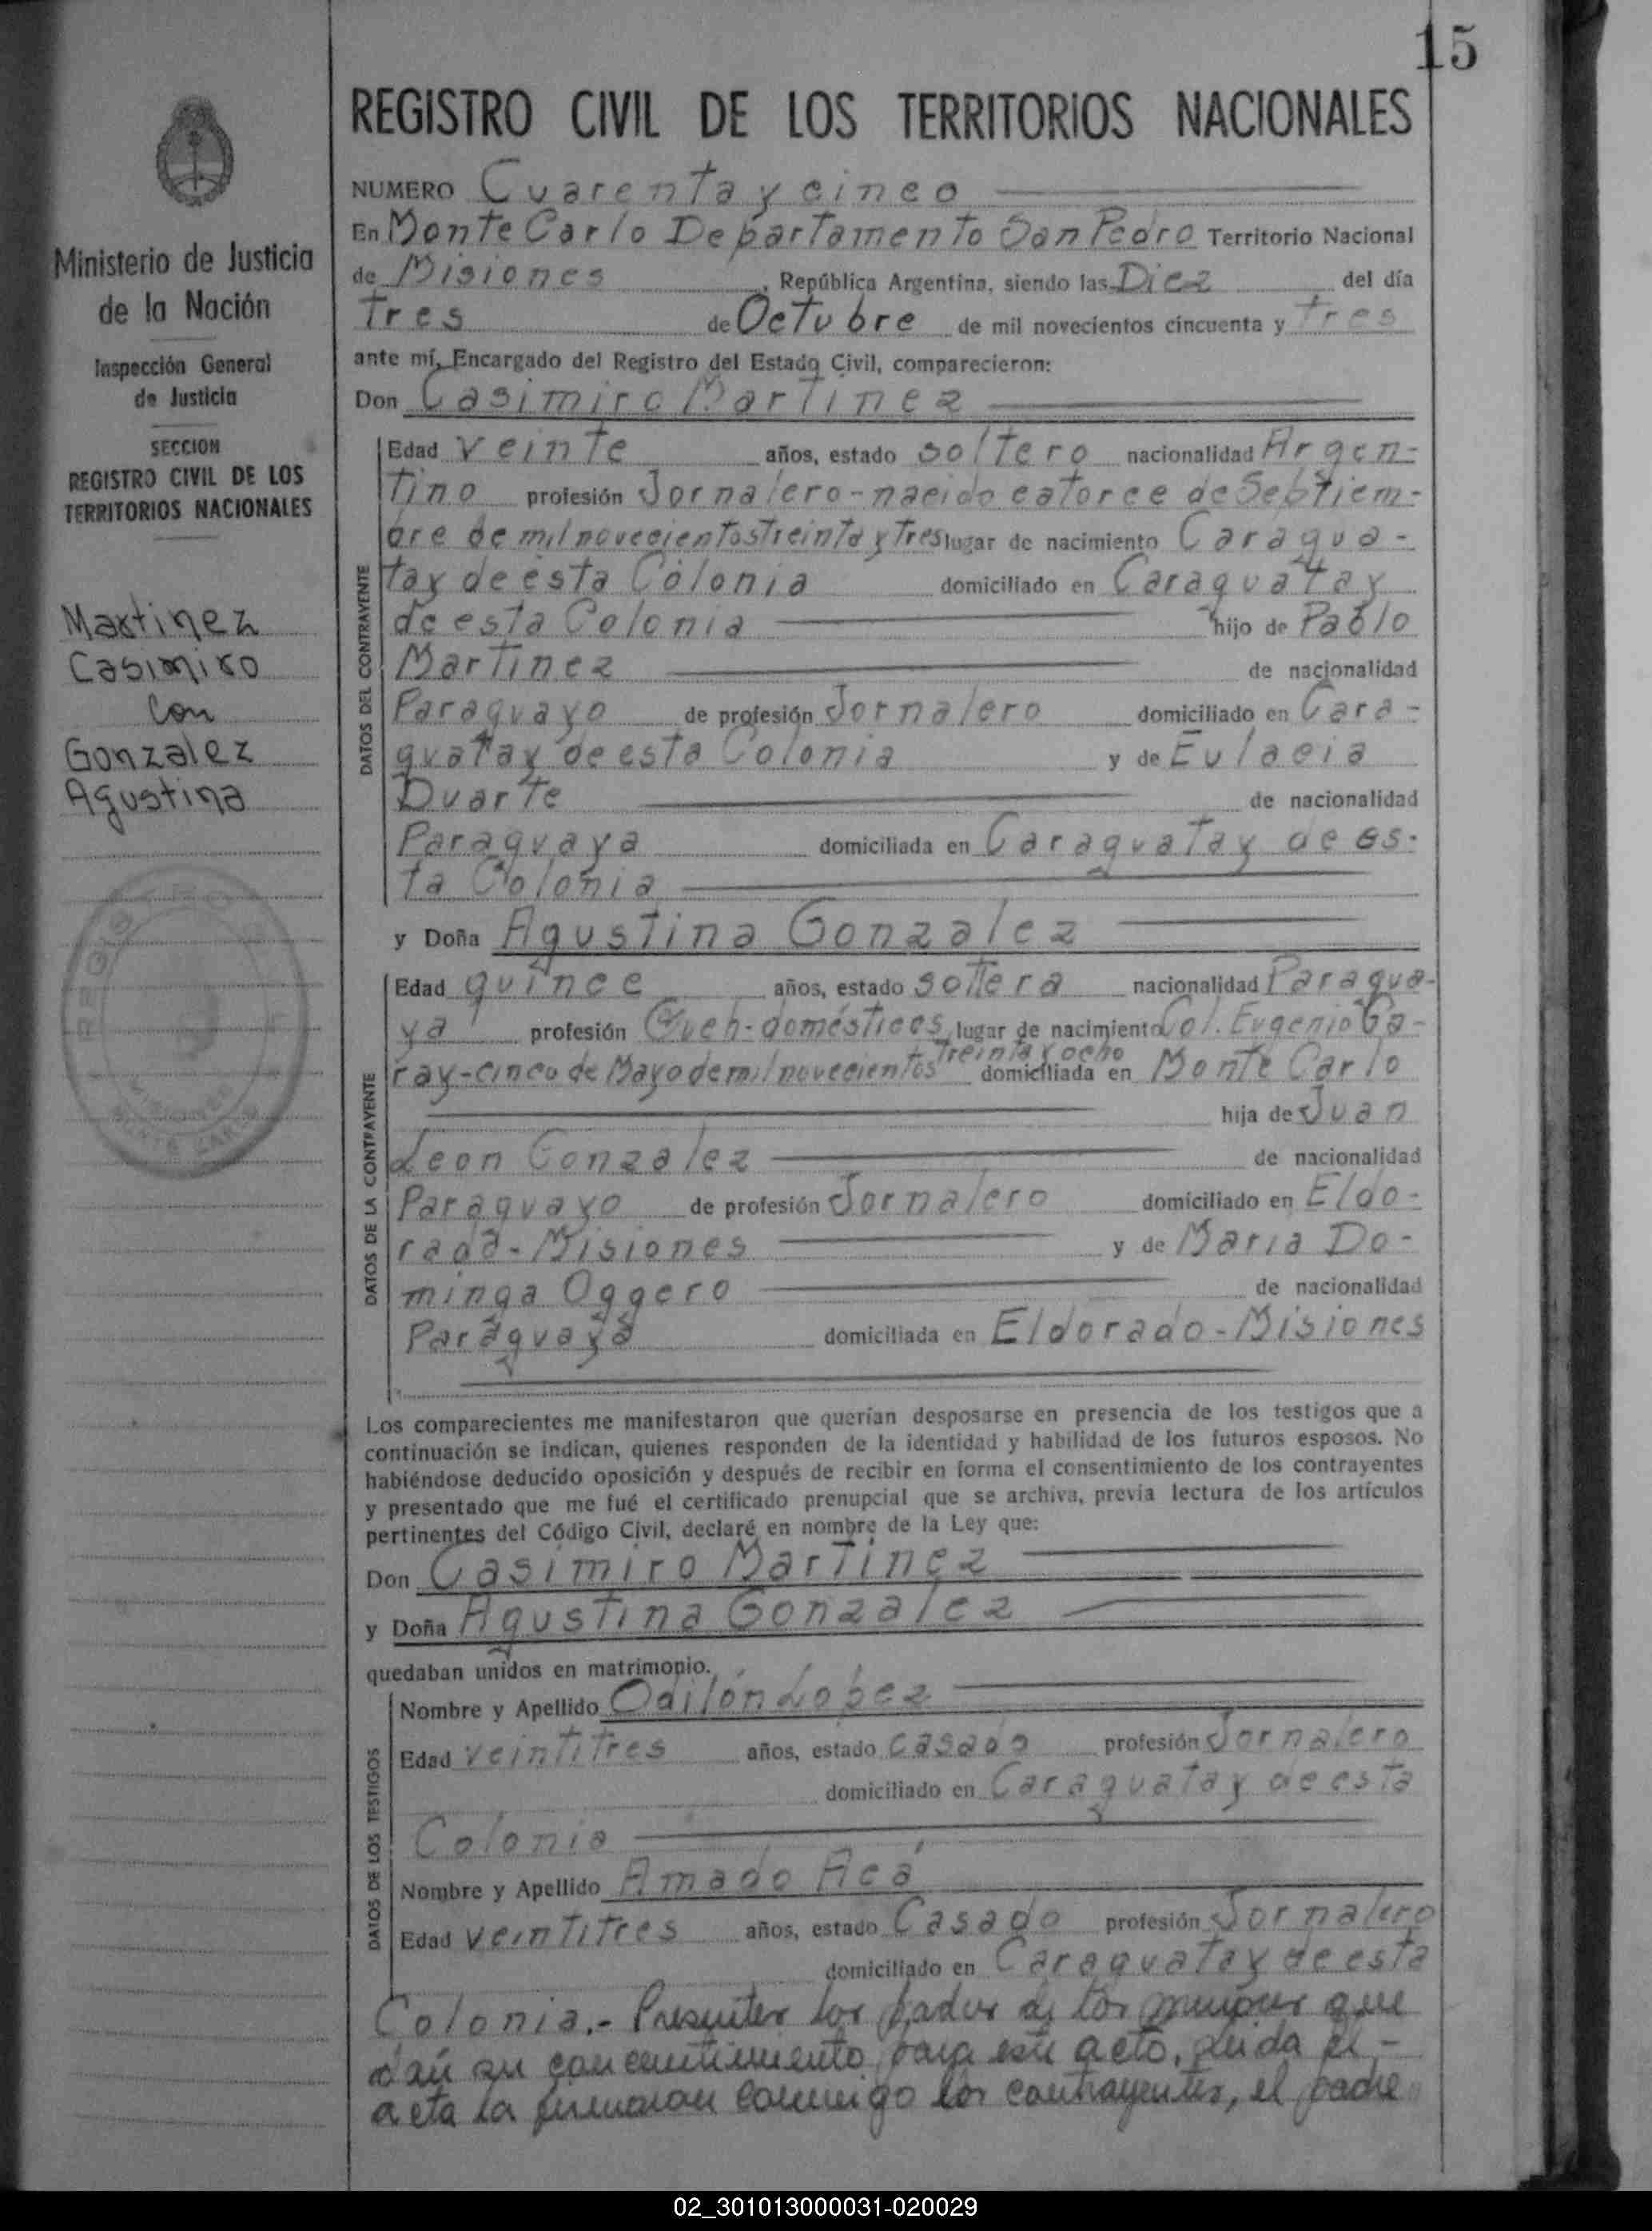 15
REGISTRO CIVIL DE LOS TERRITORIOS NACIONALES
Ministerio de Justicia
de la Nación
Inspección General
de Justicia
SECCION
REGISTRO CIVIL DE LOS
TERRITORIOS NACIONALES
Martinez
Casimiro
Con
Gonzalez
Agustina
NUMERO Cuarenta y cinco
En Monte Carlo Departamento San Pedro Territorio Nacional
de Misiones, República Argentina, siendo las Diez del día
tres de Octubre de mil novecientos cincuenta y tres
ante mí, Encargado del Registro del Estado Civil, comparecieron:
Don Casimiro Martinez
DATOS DEL CONTRAYENTE
Edad veinte años, estado soltero nacionalidad Argen-
tino profesión Jornalero-nacido catorce de Septiem-
bre de mil novecientos treinta y tres lugar de nacimiento Caragua-
tay de esta Colonia domiciliado en Caraguatay
de esta Colonia hijo de Pablo
Martinez de nacionalidad
Paraguayo de profesión Jornalero domiciliado en Cara-
guatay de esta Colonia y de Eulacia
Duarte de nacionalidad
Paraguaya domiciliada en Caraguatay de es-
ta Colonia
y Doña Agustina Gonzalez
DATOS DE LA CONTRAYENTE
Edad quince años, estado soltera nacionalidad Paragua-
ya profesión Queh-domésticos lugar de nacimiento Col. Eugenio Ga-
ray-cinco de Mayo de mil novecientos treinta y ocho domiciliada en Monte Carlo
hija de Juan
Leon Gonzalez de nacionalidad
Paraguayo de profesión Jornalero domiciliado en Eldo-
rado-Misiones y de Maria Do-
minga Oggero de nacionalidad
Paraguaya domiciliada en Eldorado-Misiones
Los comparecientes me manifestaron que querían desposarse en presencia de los testigos que a
continuación se indican, quienes responden de la identidad y habilidad de los futuros esposos. No
habiéndose deducido oposición y después de recibir en forma el consentimiento de los contrayentes
y presentado que me fué el certificado prenupcial que se archiva, previa lectura de los artículos
pertinentes del Código Civil, declaré en nombre de la Ley que:
Don Casimiro Martinez
y Doña Agustina Gonzalez
quedaban unidos en matrimonio.
DATOS DE LOS TESTIGOS
Nombre y Apellido Odilón Lopez
Edad veintitres años, estado casado profesión Jornalero
domiciliado en Caraguatay de esta
Colonia
Nombre y Apellido Amado Acá
Edad veintitres años, estado Casado profesión Jornalero
domiciliado en Caraguatay de esta
Colonia.- Presentes los padres de los menores que
dan su concentimiento para este acto, leida el-
acta la firmaron conmigo los contrayentes, el padre
02_301013000031-020029